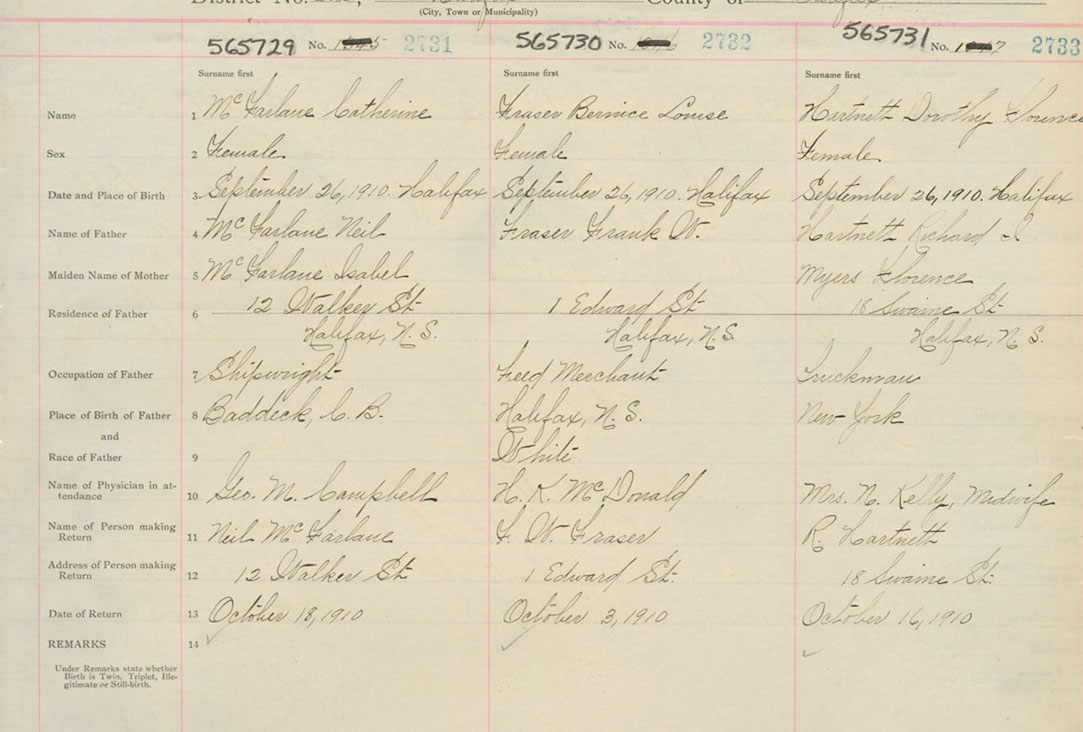 District No. County of
(City, Town or Municipality)
565729 No. 2731 565730 No. 2732 565731 No. 2733
Surname first Surname first Surname first
Name 1 McFarlane Catherine Fraser Bernice Louise Hartnett Dorothy Florence
Sex 2 Female Female Female
Date and Place of Birth 3 September 26, 1910. Halifax September 26, 1910. Halifax September 26, 1910. Halifax
Name of Father 4 McFarlane Neil Fraser Frank W. Hartnett Richard J
Maiden Name of Mother 5 McFarlane Isabel Myers Florence
Residence of Father 6 12 Walker St 1 Edward St 18 Swaine St.
Halifax, N.S. Halifax, N.S. Halifax, N.S.
Occupation of Father 7 Shipwright Feed Merchant Truckman
Place of Birth of Father 8 Baddeck, C.B. Halifax, N.S. New York
and
Race of Father 9 White
Name of Physician in at-
tendance 10 Geo. M. Campbell H. K. McDonald Mrs. N. Kelly, Midwife
Name of Person making
Return 11 Neil McFarlane F. W. Fraser R. Hartnett
Address of Person making
Return 12 12 Walker St 1 Edward St. 18 Swaine St.
Date of Return 13 October 18, 1910 October 3, 1910 October 16, 1910
REMARKS 14
Under Remarks state whether
Birth is Twin, Triplet, Ille-
gitimate or Still-birth.